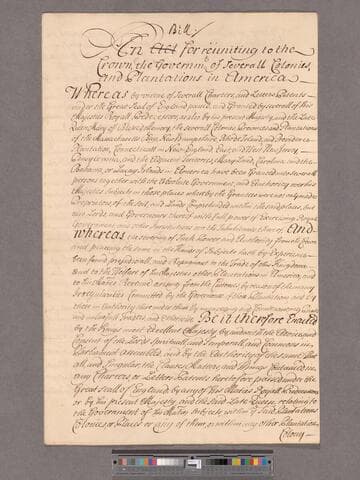 Bill
An Act for reuniting to the
Crown, the Governmt. of Severall Colonies,
and Plantations in America
Whereas by virtue of Severall Charters, and Letters Patents
under the Great Seal of England passed, and Granted by severall of His
Majesties Royall Predecessors, as also by his present Majesty, and the Late
Queen Mary of Blessed Memory, the severall Colonies, Provinces and Plantations
of the Massachusetts Bay, New Hampshire, Rhode Island, and Providence
Plantation, Connecticutt in New England, East and West New Jersey,
Pensylvania, and the Adjacent Territories, Maryland, Carolina, and the
Bahama, or Lucay Islands in America have been Granted unto severall
persons together with the Absolute Government, and Authority over his
Majesties Subjects in those places, whereby the Grantees are not only made
Proprietors of the Soil, and Lands Comprehended within the said places, but
also Lords, and Governours thereof with full power of Exercising Royal
Government and other Jurisdictions over the Inhabitants thereof, And
whereas the severing of such Power and Authority from the Crown
and placing the same in the Hands of Subjects hath by Experience
been found prejudiciall, and Repugnant to the Trade of this Kingdom
and to the Welfare of his Majesties other Plantations in America, and
to his Majties Revenue arising from the Customs by reason of the many
Irregularities Committed by the Governours of those Plantations and by
those in Authority there under them by
and unlawfull Traders and otherwise Be it therefore Enacted
by the Kings most Excellent Majesty by and with the Advice and
Consent of the Lords Spirituall, and Temporall, and Commons in
Parliament assembled, and by the Authority of the same That
all, and Singular the Clauses, Matters, and things Contained in
any Charters, or Letters Patents heretofore passed under the
Great Seall of England, by any of His Majties Royall Predecessors
or by his present Majesty, and the said Late Queen, relating to
the Government of his Majties Subjects within the Said Plantations
Colonies, or places or any of them, or within any other Plantation
Colony